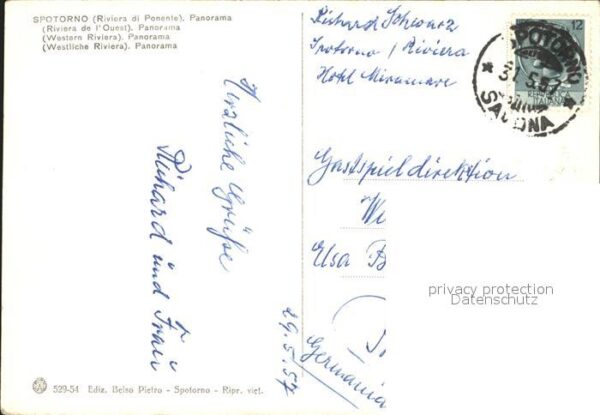 SPOTORNO (Riviera di Ponente). Panorama
(Riviera de l'Ouest). Panorama
(Western Riviera). Panorama
(Westliche Riviera). Panorama
Herzliche Grüße
Richard und Frau
29.5.57
529-54 Ediz. Belso Pietro - Spotorno - Ripr. viet.
Richard Schwarz
Spotorno / Riviera
Hotel Miramare
12
SPOTORNO
31.5.57
SAVONA
REPUBBLICA
ITALIANA
Gastspieldirektion
Elsa B
Germania
privacy protection
Datenschutz